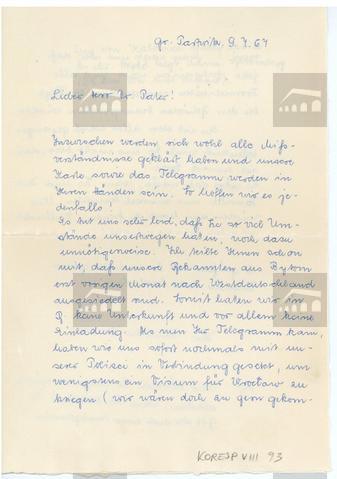 Gr. Partwitz 9.7.67
Lieber Herr Dr. Pater!
Inzwischen werden sich wohl alle Miß-
verständnisse geklärt haben und unsere
Karte sowie das Telegramm werden in
Ihren Händen sein. So hoffen wir es je-
denfalls!
Es tut uns sehr leid, daß Sie so viel Um-
stände unseretwegen hatten, noch dazu
unnötigerweise. Ich teilte Ihnen schon
mit, daß unsere Bekannten aus Bytom
erst vorigen Monat nach Westdeutschland
ausgesiedelt sind. Somit hatten wir in
P. kein Unterkunft und vor allem keine
Einladung. Als nun Ihr Telegramm kam,
haben wir uns sofort nochmals mit un-
serer Polizei in Verbindung gesetzt, um
wenigstens ein Visum für Wrocław zu
kriegen (wir wären doch zu gern gekom-
KORESP VIII 93